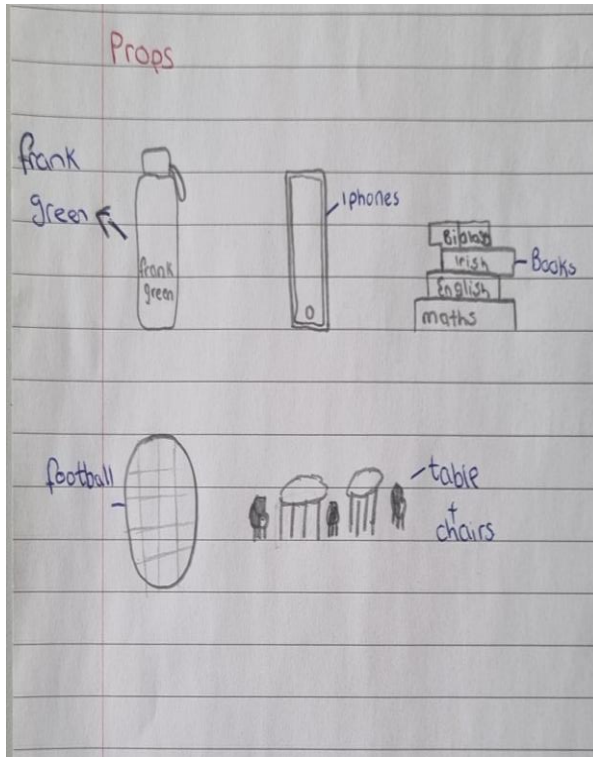 Props
frank
green
frank
green
iphones
Irish
English
maths
Books
football
table
+
chairs